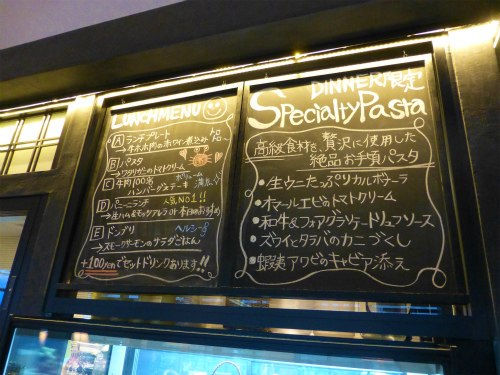 LUNCH MENU
A ランチプレート
→牛ホホ肉のホワイン煮込み
B パスタ
→ワタリガニのトマトクリーム
C 牛肉100%
ハンバーグステーキ
ボリューム
満点
D パニーニランチ 人気No1!!
→生ハム&モッツァレラor本日のおすすめ
E ドンブリ ヘルシー
→スモークサーモンのサラダごはん
+100円でセットドリンクあります!!
DINNER限定
Specialty Pasta
高級食材を、贅沢に使用した
絶品お手頃パスタ
・生ウニたっぷりカルボナーラ
・オマールエビのトマトクリーム
・和牛&フォアグラソテートリュフソース
・ズワイとタラバのカニづくし
・蝦夷アワビのキャビア添え